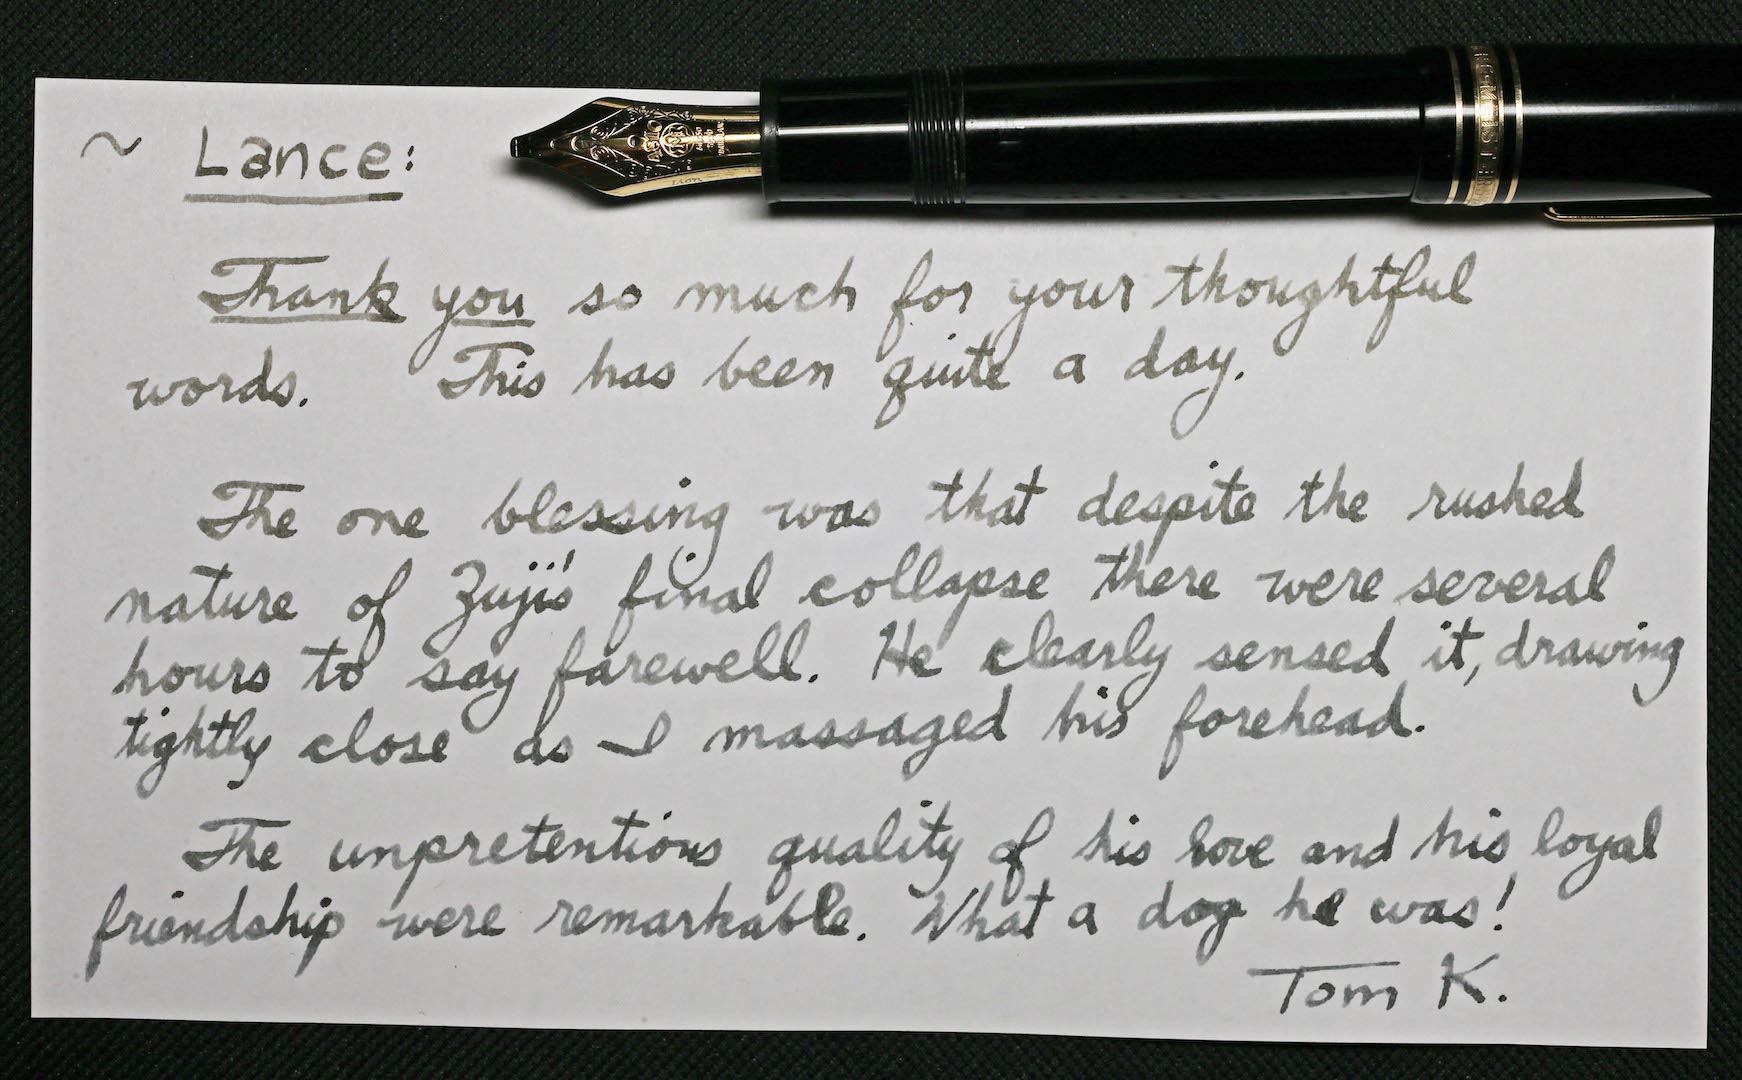 ~ Lance:
Thank you so much for your thoughtful
words. This has been quite a day.
The one blessing was that despite the rushed
nature of Zuji's final collapse there were several
hours to say farewell. He clearly sensed it, drawing
tightly close as I massaged his forehead.
The unpretentious quality of his love and his loyal
friendship were remarkable. What a dog he was!
Tom K.